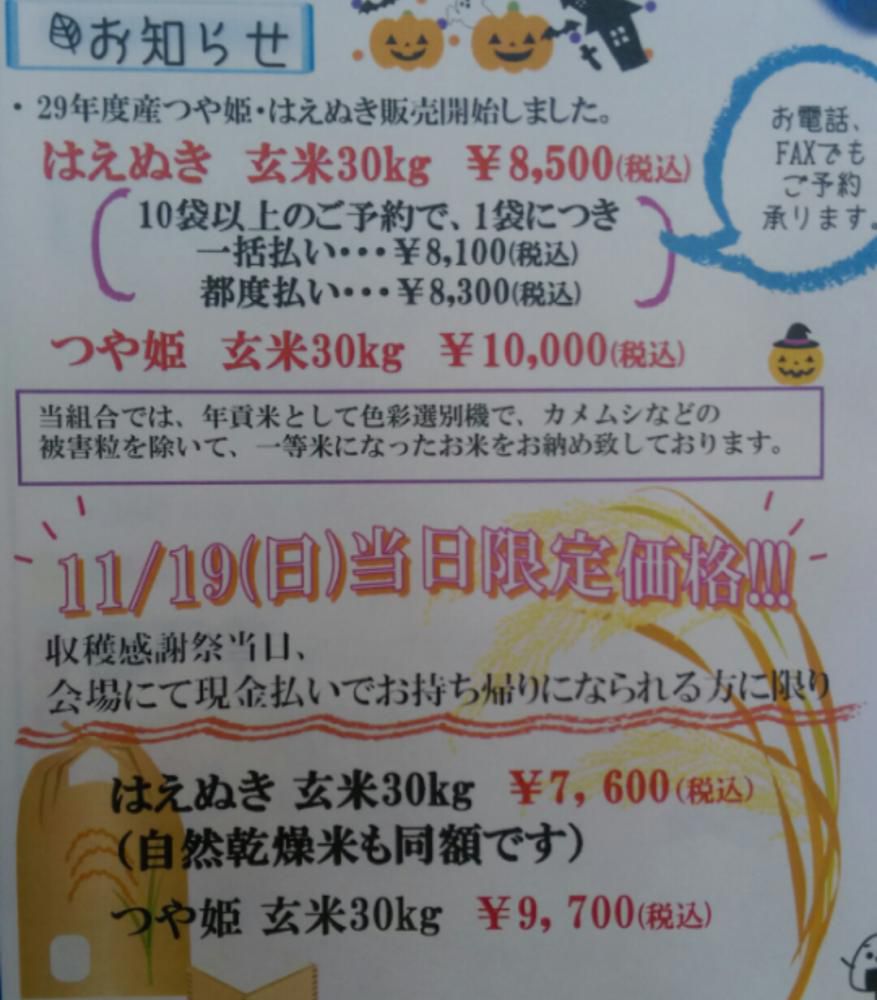 お知らせ
・29年度産つや姫・はえぬき販売開始しました。
はえぬき 玄米30kg ￥8,500(税込)
10袋以上のご予約で、1袋につき
一括払い･･･￥8,100(税込)
都度払い･･･￥8,300(税込)
お電話、
FAXでも
ご予約
承ります。
つや姫 玄米30kg ￥10,000(税込)
当組合では、年貢米として色彩選別機で、カメムシなどの
被害粒を除いて、一等米になったお米をお納め致しております。
11/19(日)当日限定価格!!!
収穫感謝祭当日、
会場にて現金払いでお持ち帰りになられる方に限り
はえぬき 玄米30kg ￥7,600(税込)
（自然乾燥米も同額です）
つや姫 玄米30kg ￥9,700(税込)